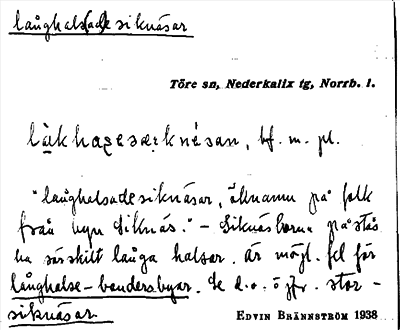 långhals(ade) siknäsar
Töre sn, Nederkalix tg, Norrb. l.
bf. m. pl.
"långhalsade siknäsar, öknamn på folk
från byn Siknäs." – Siknäsborna påstås
ha särskilt långa halsar. Är möjl. fel för
långhalse-bondersbyar. Se d.o. ö. jfr. stor-
siknäsar.
EDVIN BRÄNNSTRÖM 1938